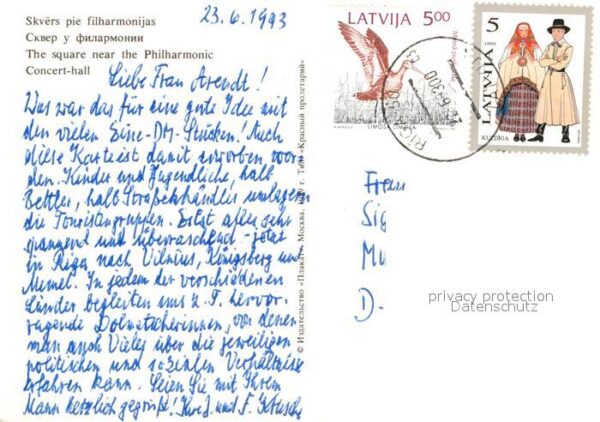 Skvērs pie filharmonijas
Сквер у филармонии
The square near the Philharmonic
Concert-hall
23.6.1993
Liebe Frau Arendt!
Was war das für eine gute Idee mit
den vielen Eine-DM-Stücken! Auch
diese Karte ist damit erworben wor-
den. Kinder und Jugendliche, halb
Bettler, halb Straßenhändler umlagern
die Touristengruppen. Ist alles sehr
spannend und überraschend - jetzt
in Riga nach Vilnius, Königsberg und
Memel. In jedem der verschiedenen
Länder begleiten uns z.T. hervor-
ragende Dolmetscherinnen, von denen
man auch Vieles über die jeweiligen
politischen und sozialen Verhältnisse
erfahren kann. Seien Sie mit Ihrem
Mann herzlich gegrüßt! Ihre J. und F.
© Издательство «Плакат». Москва, 1989 г. Тип. «Красный пролетарий»
LATVIJA 5.00
LIMOSA LIMOSA
5
1993
LATVIJA
KULDĪGA
Frau
Sig
Mu
D-
privacy protection
Datenschutz